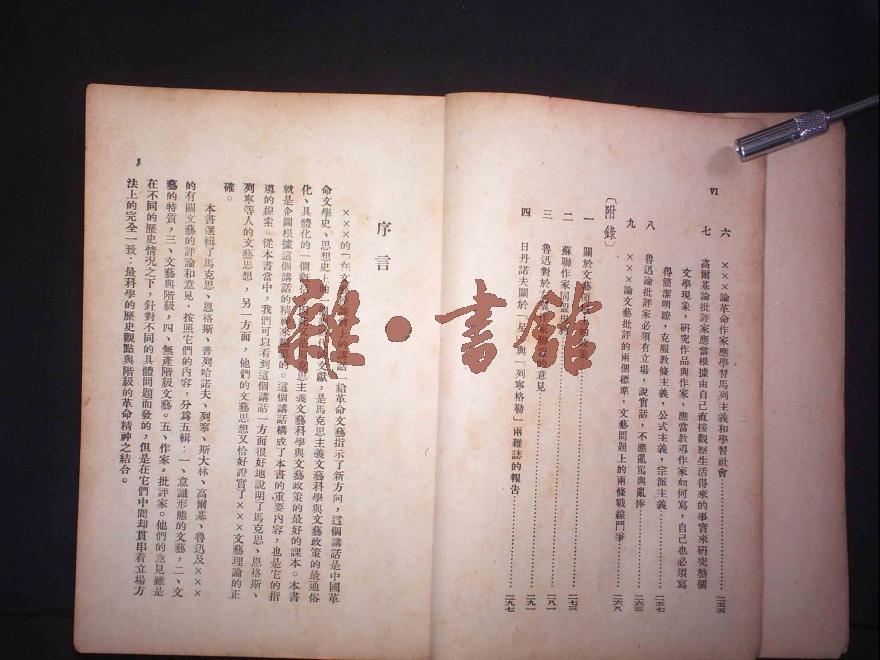 VI
六 ×××論革命作家應學習馬列主義和學習社會 二五五
七 高爾基論批評家應當根據由自己直接觀察生活得來的事實來研究整個
文學現象，研究作品與作家，應當教導作家如何寫，自己也必須寫
得簡潔明瞭，克服教條主義，公式主義，宗派主義 二五七
八 魯迅論批評家必須有立場，說實話，不應亂罵與亂捧 二六三
九 ×××論文藝批評的兩個標準，文藝問題上的兩條戰線鬥爭 二六八
〔附錄〕
一 關於文藝 的政策 二七三
二 蘇聯作家同盟
三 魯迅對於 的意見 二八一
四 日丹諾夫關於「星 與「列寧格勒」兩雜誌的報告 二九七
序言
×××的「在文 上的講話」給革命文藝指示了新方向，這個講話是中國革
命文學史、思想史上的 文獻，是馬克思主義文藝科學與文藝政策的最通俗
化、具體化的一個 克思主義文藝科學與文藝政策的最好的課本。本書
就是企圖根據這個講話的精神來 的。這個講話構成了本書的重要內容，也是它的指
導的線索。從本書當中，我們可以看到這個講話一方面很好地說明了馬克思、恩格斯、
列寧等人的文藝思想，另一方面，他們的文藝思想又恰好證實了×××文藝理論的正
確。
本書選輯了馬克思、恩格斯、普列哈諾夫、列寧、斯大林、高爾基、魯迅及×××
的有關文藝的評論和意見，按照它們的內容，分爲五輯：一、意識形態的文藝，二、文
藝的特質，三、文藝與階級，四、無產階級文藝。五、作家，批評家。他們的意見雖是
在不同的歷史情況之下，針對不同的具體問題而發的，但是在它們中間却貫串着立場方
法上的完全一致：最科學的歷史觀點與階級的革命精神之結合。
雅·書館